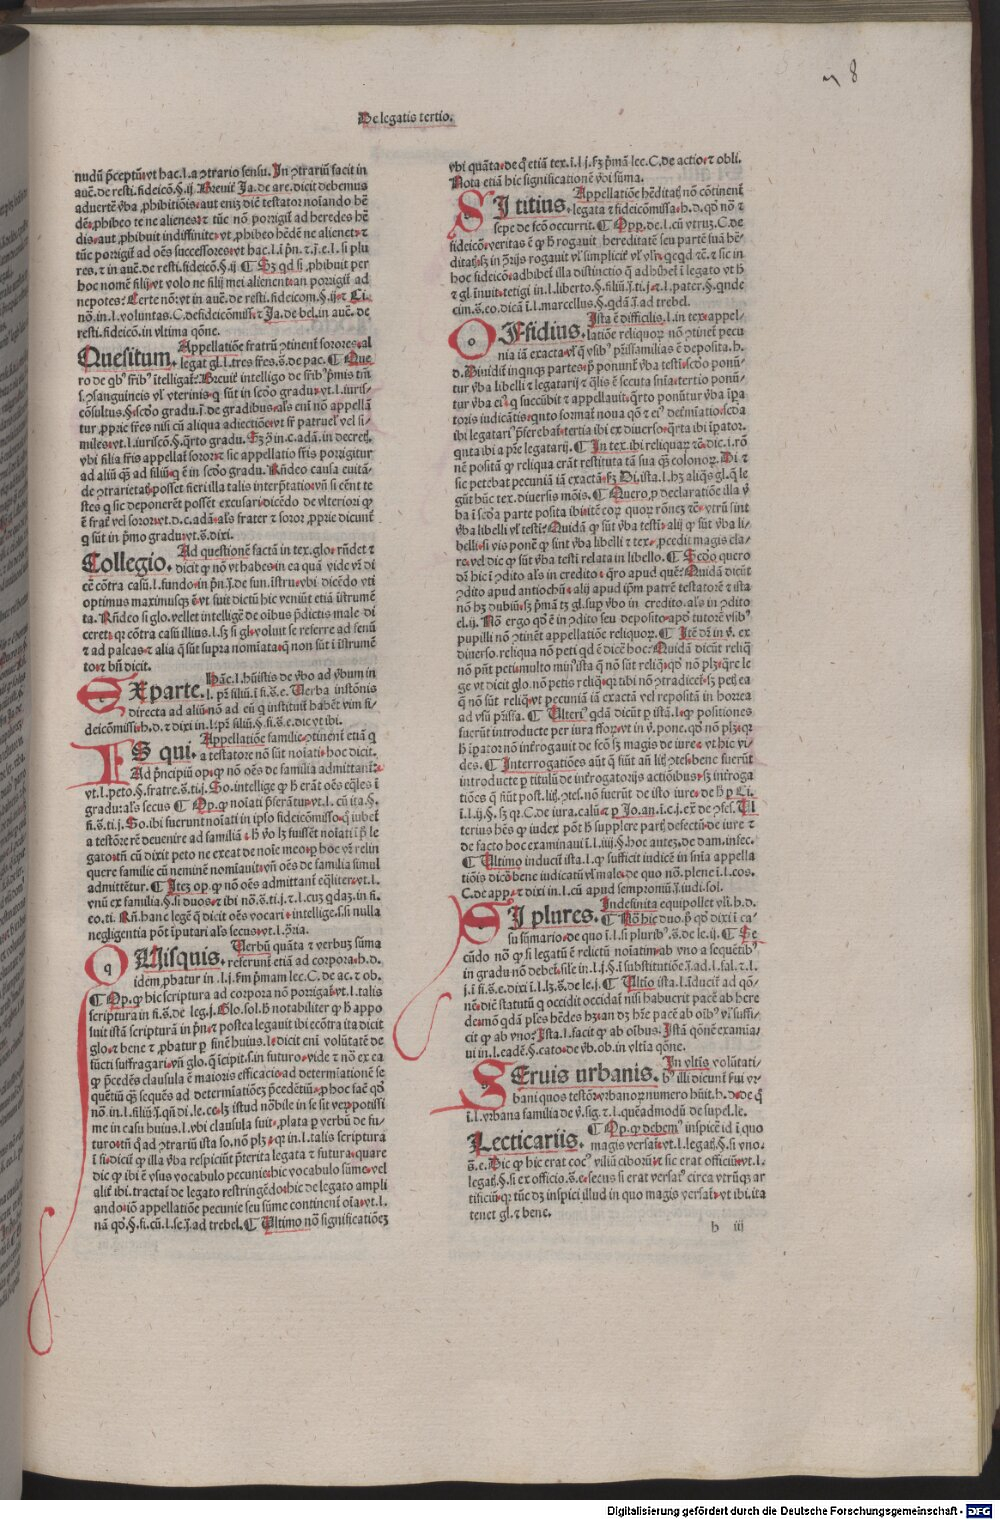 De legatis tertio.
8
nudū p̄ceptū vt hac.l.a ꝯtrario sensu. In ꝯtrariū facit in
auē.de resti.fideicō.§.ij. Breuiť Ja.de are.dicit debemus
aduertē ṽba ꝓhibitiōis aut eniz diē testator noiando hē
dē ꝓhibeo te ne alienes ⁊ tūc nō porrigiť ad heredes hē
dis aut ꝓhibuit indiffinite vt ꝓhibeo hēdē ne alienet ⁊
tūc porrigiť ad oēs successores vt hac.l.i p̄n. ⁊.j.e.l. si plu
res. ⁊ in auē.de resti.fideicō.§.ij ¶ Sz qd si ꝓhibuit per
hoc nomē filij vt volo ne filij mei alienent an porrigiť ad
nepotes? Certe nō vt in auē.de resti.fideicom.§.ij ⁊ Ci.
nō.in.l.voluntas.C.defideicōmiss. ⁊ Ja.de bel.in auē.de
resti.fideicō.in vltima qōne.
Quesitum. Appellatiōe fratrū ꝯtinent sorores al
legat gl.l.tres fres.s̄.de pac. ¶ Que
ro de qb' frib' ītelligať? Breuiť intelligo de frib' p̄mis tm̄
s.ꝯsanguineis vl' vterinis q̄ sūt in scd̄o gradu vt.l.iuris/
cōsultus.§.scd̄o gradu.j̄.de gradibus als eni nō appella
tur ꝓprie fres nisi cū aliqua adiectiōe vt fr̄ patruel' vel si/
miles vt.l.iuriscō.§.q̄rto gradu. Sz ꝯ̄ in.c.adā.in decreť.
vbi filia fris appellať soror ⁊ sic appellatio fris porrigitur
ad aliū q̄ȝ ad filiū q̄ ē in scd̄o gradu. Rn̄deo causa euitā/
de ꝯtrarietať posset fieri illa talis interp̄tatio vn̄ si eēnt te
stes q sic deponerēt possēt excusari dicēdo de vlteriori ꝙ
ē frať vel soror vt.d.c.adā als frater ⁊ soror ꝓprie dicunť
q̄ sūt in p̄mo gradu vt.s̄.dixi.
Collegio. Ad questionē factā in tex.glo rn̄det ⁊
dicit ꝙ nō vt habes in ea quā vide vr̄ di
cē cōtra casū.l.fundo in p̄n.j̄.de fun.īstru vbi dicēdo vti
optimus maximusqȝ ē vt suit dictū hic veniūt etiā īstrumē
ta. Rn̄deo si glo.vellet intelligē de oībus p̄dictis male di
ceret qꝛ cōtra casū illius.l. sz si gl.voluit se referre ad fenū
⁊ ad paleas ⁊ alia q̄ sūt supra nomīata q̄ non sūt ī īstrumē
to ⁊ bn̄ dicit.
Ex parte. Hāc.l.hūistis de ṽbo ad ṽbum in
l. p̄r filiū.ī fi.s̄.e. Verba instōnis
directa ad aliū nō ad eū q instituiť habēt vim fi/
deicōmissi h.d. ⁊ dixi in.l.p̄r filiū.§.fi.s̄.e.dic vt ibi.
Is qui. Appellatiōe familie ꝯtinenť etiā q
a testatore nō sūt noīati hoc dicit.
Ad p̄ncipiū op.ꝙ nō oēs de familia admittanť
vt.l.peto.§.fratre.s̄.ti.j. So.intellige ꝙ h̄ erāt oēs eq̄les ī
gradu als secus ¶ Op.ꝙ noīati p̄ferātur vt.l. cū ita.§.
fi.s̄.ti.j. So.ibi fuerunt noīati in ipso fideicōmisso q̄ iubeť
a testōre rē deuenire ad familiā h̄ ṽo lz fuissēt noīati ī p̄ le
gato tn̄ cū dixit peto ne exeat de noīe meo ꝑ hoc vr̄ relin
quere familie cū neminē nomīauit vn̄ oēs de familia simul
admittētur. ¶ Itez op.ꝙ nō oēs admittanť eq̄liter vt.l.
vnū ex familia.§.si duos ⁊ ibi nō.s̄.ti.j. ⁊.l.cuz qdaȝ.in fi.
eo.ti. Rn̄.hanc legē q̄ dicit oēs vocari intellige.s.si nulla
negligentia pōt īputari als secus vt.l.ꝯ̄ria.
Quisquis. Verbū quāta ⁊ verbuȝ sūma
referunť etiā ad corpora h.d.
idem ꝓbatur in.l.j.fm p̄mam lec.C.de ac. ⁊ ob.
¶ Op.ꝙ hic scriptura ad corpora nō porrigať vt.l.talis
scriptura in fi.s̄.de leg.j. Glo.sol.h̄ notabiliter ꝙ h̄ appo
suit istā scripturā in p̄n ⁊ postea legauit ibi ecōtra ita dicit
glo ⁊ bene ⁊ ꝓbatur ꝑ finē huius.l.dicit eni volūtatē de
fūcti suffragari vn̄ glo.q̄ īcipit.s.in futuro vide ⁊ nō ex ea
ꝙ p̄cedēs clausula ē maioris efficacie ad determiatiōnē se
quētiū q̄ȝ seq̄uēs ad determīatiōeȝ p̄cedētiū ꝓ hoc faē qd̄
nō.in.l.filiū.j̄.qn̄ di.le.ce lz istud nōbile in se sit verpotissi
me in casu huius.l.vbi clausula fuit plata ꝑ verbū de fu/
turo tn̄ q̄ ad ꝯtrariū ista so.nō plȝ qꝛ in.l.talis scriptura
ī si dicū ꝙ illa ṽba respiciūt p̄terita legata ⁊ futura quare
dic ꝙ ibi ē vsus vocabulo pecunie hic vocabulo sūme vel
aliť ibi.tractať de legato restringēdo hic de legato ampli
ando iō appellatiōe pecunie seu sūme continent oīa vt.l.
nā qō.§.si.cū.l.se.j̄.ad trebel. ¶ Ultimo nō significatiōeȝ
vbi quāta de q̄ etiā tex.ī.l.j. sz p̄mā lec.C.de actio ⁊ obli.
Nota etiā hic significationē ṽbi sūma.
Si titius. Appellatiōe hēditatȝ nō cōtinenť
legata ⁊ fideicōmissa h.d. qō nō ⁊
sepe de fcō occurrit. ¶ Opp.de.l.cū vtruȝ.C.de
fideicō veritas ē ꝙ h̄ rogauiť hereditatē seu partē suā hē/
ditatȝ sz in ꝯ̄rijo rogauit vl' simpliciť vl' vlt̄ qcqd ⁊c̄. ⁊ sic in
hoc fideicō adhibeť illa distinctio q̄ adhibeť ī legato vt h̄
⁊ gl īnuit tetigi in.l.liberto.§.filiū.j̄.ti.j ⁊.l.pater.§.qnde
cim.s̄.eo.dicā ī.l.marcellus.§.qdā.j̄.ad trebel.
Offidius. Ista ē difficilis.l.in tex appel/
latiōe reliquoꝝ nō ꝯtineť pecu
nia iā exacta vl' q̄ vsib' pr̄isfamilias ē deposita.h.
d. Diuidiť in qnqȝ partes p̄ ponunť ṽba testi scd̄o ponū/
tur ṽba libelli ⁊ legatarij ⁊ q̄lis ē secuta snīa tertio ponū/
tur ṽba ei' q̄ succūbit ⁊ appellauit q̄rto ponūtur ṽba īpa
toris iudicātis qnto formať noua qō ⁊ ei' deťmīatio scd̄a
ibi legatari' p̄ferebať tertia ibi ex diuerso q̄rta ibi īpator.
qnta ibi a pr̄e legatarij. ¶ In tex.ibi reliquaꝝ ⁊c̄.dic.i rō
nē positā ꝙ reliqua erāt restituta tā sua q̄ȝ colonoꝝ. Di ⁊
sic petebat pecuniā iā exactā sz Di.ista.l. hȝ aliq̄s gl.q̄ le
gūt hūc tex.diuersis mōis. ¶ Quero ꝑ declaratiōe illa ṽ
ba ī scd̄a parte posita ibi itē eoꝝ quoꝝ rōneȝ ⁊c̄ vtrū sint
ṽba libelli vl' testī? Quidā ꝙ sūt ṽba testi alij ꝙ sūt ṽba li/
belli si vis ponē ꝙ sint ṽba libelli ⁊ tex ꝓcedit magis cla/
re vel dic ꝙ sūt ṽba testi relata in libello. ¶ Scd̄o quero
dn̄ hic ī ꝯdito als in credito q̄ro apud quē? Quidā dicūt
ꝯdito apud antiochū alij apud ip̄m patrē testatorē ⁊ ista
nō hȝ dubiū sz p̄mā tȝ gl.sup ṽbo in credito.als in ꝯdito
el.ij. Nō ergo qō ē in ꝯdito seu deposito apd̄ tutorē vsib'
pupilli nō ꝯtineť appellatiōe reliquoꝝ. ¶ Itē dr̄ in ṽ. ex
diuerso.reliqua nō peti qd ē dicē hoc? Quidā dicūt reliq̄
nō pn̄t peti multo min' ista q̄ nō sūt reliq̄ qō nō plȝ q̄re le
ge vt dicit glo.nō petis reliq̄ qꝛ tibi nō ꝯtradiceť sz peť ea
q̄ nō sūt reliq̄ vt pecuniā iā exactā vel repositā in horrea
ad vsū pr̄issa. ¶ Ulteri' qdā dicūt ꝑ istā.l. ꝙ positiones
fuerūt introducte per iura ffoꝝ vt in ṽ. pone. qō nō plȝ qꝛ
h̄ īpator nō intrōgauit de fcō sȝ magis de iure vt hic vi/
des. ¶ Interrogatiōes aūt q̄ fiūt añ litȝ ꝯtes bene fuerūt
introducte ꝑ titulū de intrōgatorijs actiōibus sz introga
tiōes q̄ fiūt post.litȝ ꝯtes.nō fuerūt de isto iure de h̄ ꝑ Ci.
ī.l.ij.§.sz qꝛ.C.de iura.calū ⁊ ꝑ Jo.an.ī.c.j.ex̄ de ꝯfes. Ul
terius hēs ꝙ iudex pōt h̄ supplere partȝ defectū de iure ⁊
de facto hoc examinaui ī.l.iiij.§.hoc aut eȝ.de dam.infec.
¶ Ultimo inducīť ista.l.ꝙ sufficit iudicē in snīa appella
tiōis dicō bene iudicatū vl' male de quo nō.plene ī.l.eos.
C.de app. ⁊ dixi in.l.cū apud semproniū.j̄.iudi.sol.
Si plures. Indefinita equipollet vl̄i.h.d.
¶ Rō hic duo p̄ qō dixi ī ca/
su sūmario de quo ī.l.si plurib'.s̄.de le.ij. ¶ Se
cūdo nō ꝙ si legatū ē relictū noīatim ab vno a sequētib'
in gradu nō debeť sile in.l.j.§.ī substitutiōe j̄.ad.l.fal. ⁊.l.
j.ī fi.s̄.e.dixi ī.l.lȝ.s̄.de le.j. ¶ Ultio ista.l.īducīť ad qō/
nē diē statutū q̄ occidit occidať nisi habuerit pacē ab here
de mō qdā ples hēdes hȝ an dȝ hr̄e pacē ab oīb' vl' suffi/
cit ꝙ ab vno? Ista.l.facit ꝙ ab oībus. Istā qōnē examīa/
ui in.l.eadē.§.cato de ṽb.ob.in vltīa qōne.
Seruis urbanis. In vltis volūtati/
b' illi dicunť fui vr/
bani quos testōr vrbanoꝝ numero hūit.h.d de q̄
ī.l.vrbana familia de ṽ.sig. ⁊.l.quēadmodū de supel.le.
Lecticariis. ¶ Op.ꝙ debem' inspicē id ī quo
magis versať vt.l.legatȝ.§.si vno.
s̄.e. Dic ꝙ hic erat coc' viliū cibori ⁊ sic erat officiū vt.l.
legatȝ.§.si ex officio.s̄.e. secus si erat versat' circa vtrūqȝ ar
tificiū qꝛ tūc dȝ inspici illud in quo magis versať vt ibi.ita
tenet gl. ⁊ bene.
b iij
Digitalisierung gefördert durch die Deutsche Forschungsgemeinschaft - DFG